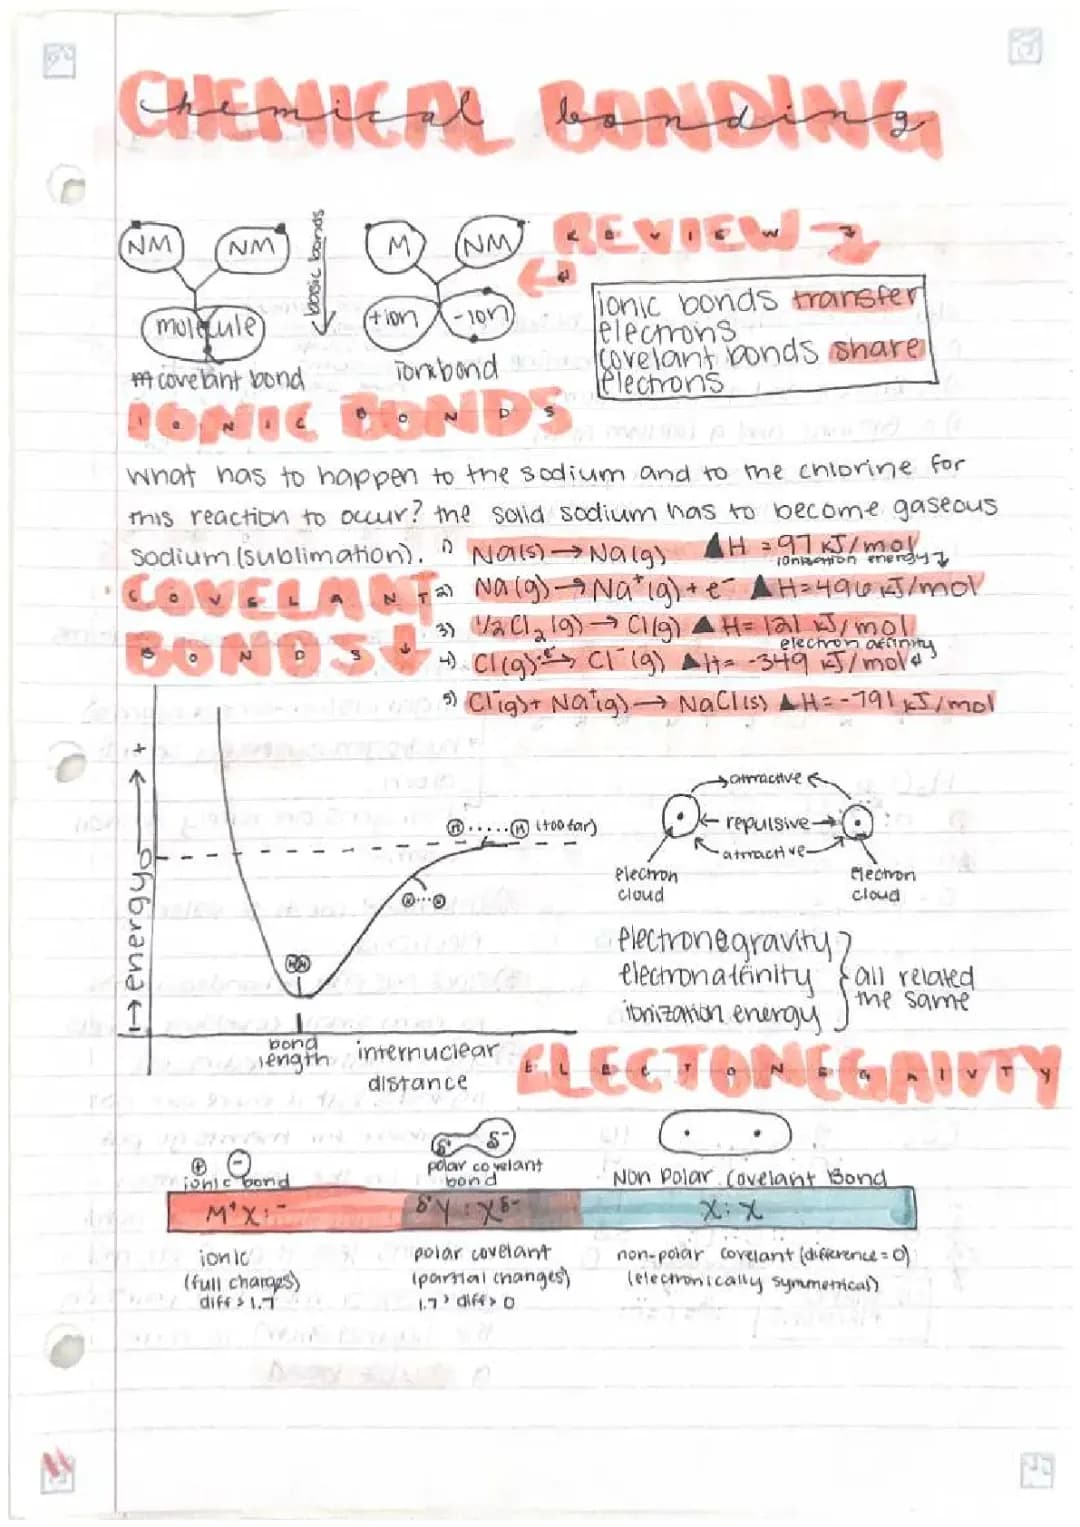 CHEMICAL BONDING
chemical bonding
NM
NM
molecule
covelant bond
basic bonds
M
NM
+ion
-ion
ionic bond
REVIEW
REVIEW
ionic bonds transfer
electrons
covelant bonds share
electrons
IONIC BONDS
IONIC BONDS
what has to happen to the sodium and to the chlorine for
this reaction to occur? the solid sodium has to become gaseous
sodium (sublimation).
1) Na(s) → Na(g) ▲H = 97 kJ/mol
ionization energy
2) Na(g) → Na⁺(g) + e⁻ ▲H = 496 kJ/mol
3) 1/2 Cl₂ (g) → Cl(g) ▲H = 121 kJ/mol
electron affinity
4) Cl(g) e⁻→ Cl⁻(g) ▲H = -349 kJ/mol
5) Cl⁻(g) + Na⁺(g) → NaCl(s) ▲H = -791 kJ/mol
COVELANT
COVELANT
BONDS
BONDS
energy
+
0
H.....H (too far)
H...H
HH
bond
length
internuclear
distance
attractive
repulsive
attractive
electron
cloud
electron
cloud
electronegravity
electronatfinity
ionization energy
all related
the same
ELECTONEGAIVTY
ELECTONEGAIVTY
+ -
ionic bond
δ⁺ δ⁻
polar covelant
bond
Non Polar Covelant Bond
M⁺X:⁻
δ⁺Y : Xδ⁻
X : X
ionic
(full charges)
diff > 1.7
polar covelant
(partial changes)
1.7 > diff > 0
non-polar covelant (difference = 0)
(electronically symmetrical)